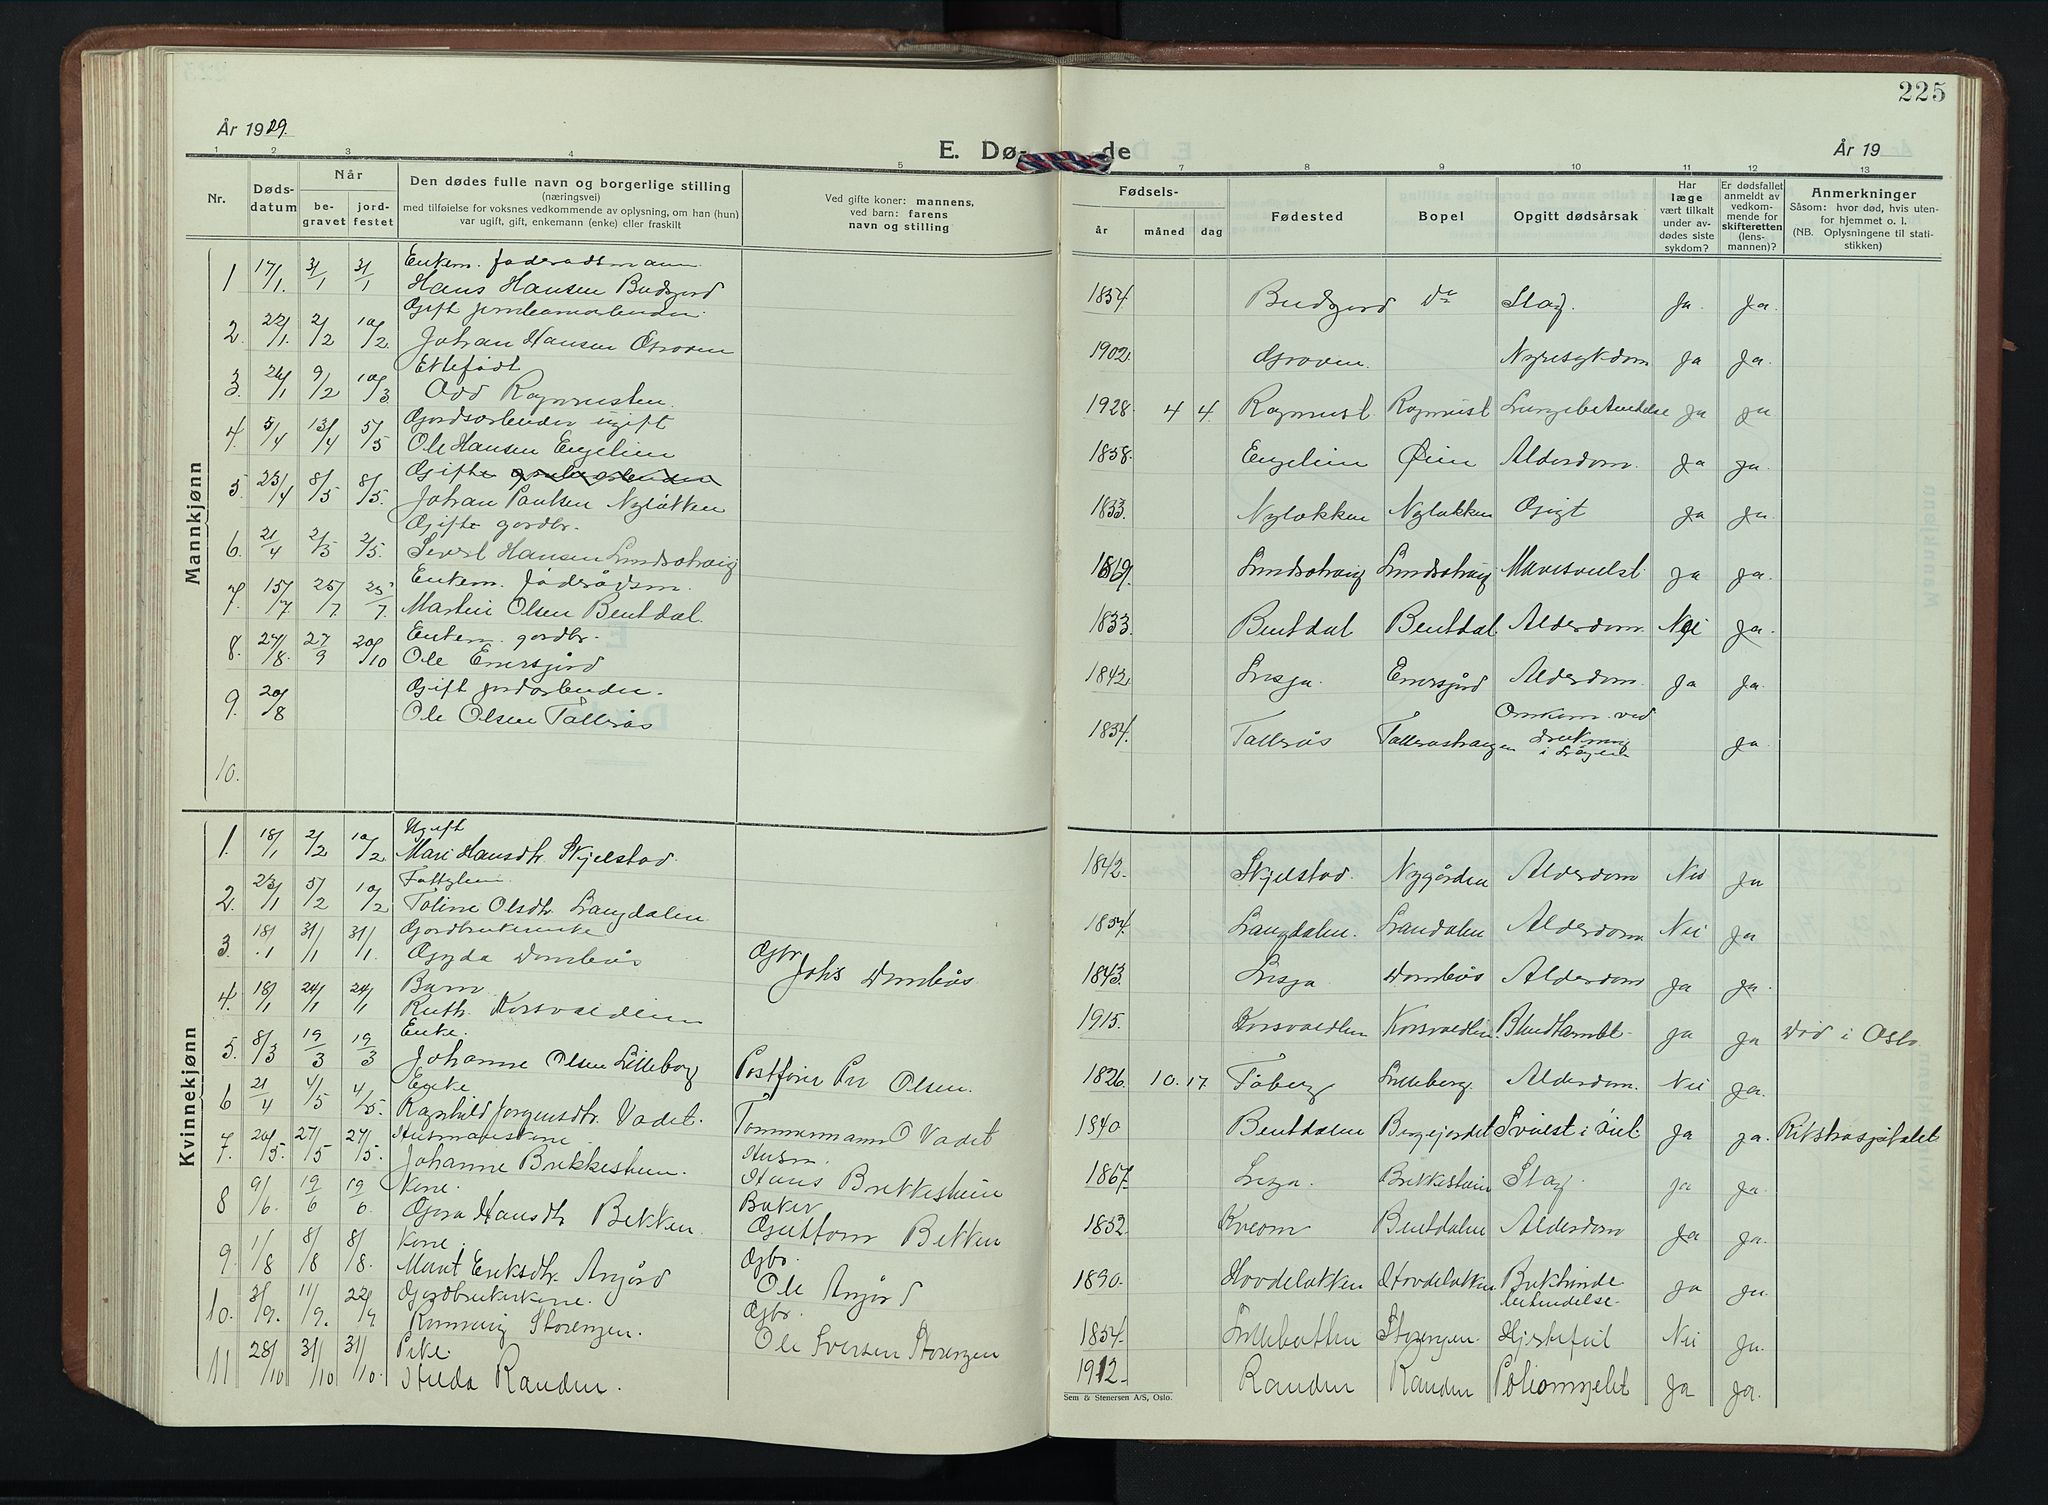 225
År 1929.
E. Dø de
År 19
1 2 3 4 5 7 8 9 10 11 12 13
Nr.
Døds-
datum
Når
be-
gravet
jord-
festet
Den dødes fulle navn og borgerlige stilling
(næringsvei)
med tilføielse for voksnes vedkommende av oplysning, om han (hun)
var ugift, gift, enkemann (enke) eller fraskilt
Ved gifte koner: mannens,
ved barn: farens
navn og stilling
Fødsels-
år måned dag
Fødested
Bopel
Opgitt dødsårsak
Har
læge
vært tilkalt
under av-
dødes siste
sykdom?
Er dødsfallet
anmeldt av
vedkom-
mende for
skifteretten
(lens-
mannen)?
Anmerkninger
Såsom: hvor død, hvis uten-
for hjemmet o. l.
(NB. Oplysningene til stati-
stikken)
Mannkjønn
Enkem. føderådsmann
1 17/1. 31/1 31/1 Hans Hansen Budsjord 1834. Budsjord do Slag. Ja. Ja.
Gift
2. 22/1. 2/2 10/2. Johan Hansen Groven 1902. Groven. Nyresykdom Ja Ja.
Ektefødt
3. 26/1 9/2 10/3 Odd 1928. 4 4. Ja Ja
Gårdsarbeider ugift
4. 5/4 13/4 5/5 Ole Hansen Engelien 1838. Engelien Øien Alderdom. Ja Ja.
Gift
5. 23/4 8/5 8/5. Johan Paulsen Nyløkken 1833. Nyløkken Nyløkken Gigt Ja Ja.
Gift gårdbr.
6. 21/4 2/5 2/5. Hansen 1869. Mavesvulst Ja Ja.
Enkem. føderådsm.
7. 15/7 25/7 25/7. Martin Olsen Bentdal. 1833. Bentdal Bentdal Alderdom. Nei Ja.
Enkem. gårdbr.
8. 27/8. 27/9 20/10 Ole 1842. Lesja. Alderdom. Ja Ja.
Gift jordarbeider.
9. 20/8 Ole Olsen Tallerås 1834. Tallerås Omkom ved drukning i Lågen Ja
10.
Kvinnekjønn
Ugift
1. 18/1 2/2 10/2 Mari Hansdtr. Skjelstad. 1842. Skjelstad. Nygården Alderdom Nei Ja
Fattiglem.
2. 23/1 5/2 10/2 Toline Olsdtr. Langdalen. 1834. Langdalen. Landalen Alderdom Nei Ja
Gårdbrukerenke
3. 18/1 31/1 31/1. Gyda Dombås Gbr. Johs Dombås 1843. Lesja Dombås Alderdom Ja Ja.
Barn.
4. 18/1 24/1 24/1 Ruth. Korsvoldlien 1915. Korsvoldlien Korsvoldlien Blindtarmbt. Ja Ja Død i Oslo
Enke.
5. 8/3 19/3 19/3 Johanne Olsen Lilleborg Postfører Per Olsen. 1826. 10. 17. Fåberg Lilleborg. Alderdom. Nei Ja.
Enke
6 21/4 4/5 4/5. Ragnhild Jørgensdtr. Vadet. Tømmermann O Vadet 1840. Bentdalen Svulst i livet Ja Ja. Rikshospitalet
Husmannskone
7. 20/5. 27/5 27/5. Johanne Brekkeheim. Husm. Hans Brekkeheim 1867. Lesja. Brekkeheim Slag Ja Ja.
Kone.
8 9/6. 19/6 19/6 Hansdtr. Bekken. Baker Guttorm Bekken 1852. Bentdalen Alderdom Ja Ja.
Kone.
9. 1/8 8/8 8/8. Marit Eriksdtr. Angård Gbr. Ole Angård 1890. Hovdeløkken Hovdeløkken Bukhinde betendelse. Ja Ja
Gårdbrukerkone.
10. 3/9. 11/9. 22/9 Rønnaug Storengen. Gbr. Ole Iversen Storengen 1854. Lillebotten Storengen. Hjertefeil Nei Ja.
Pike.
11 28/10 31/10 31/10. Hilda Randen. 1912. Randen Randen Poliomyelit Ja Ja.
Sem & Stenersen A/S, Oslo.